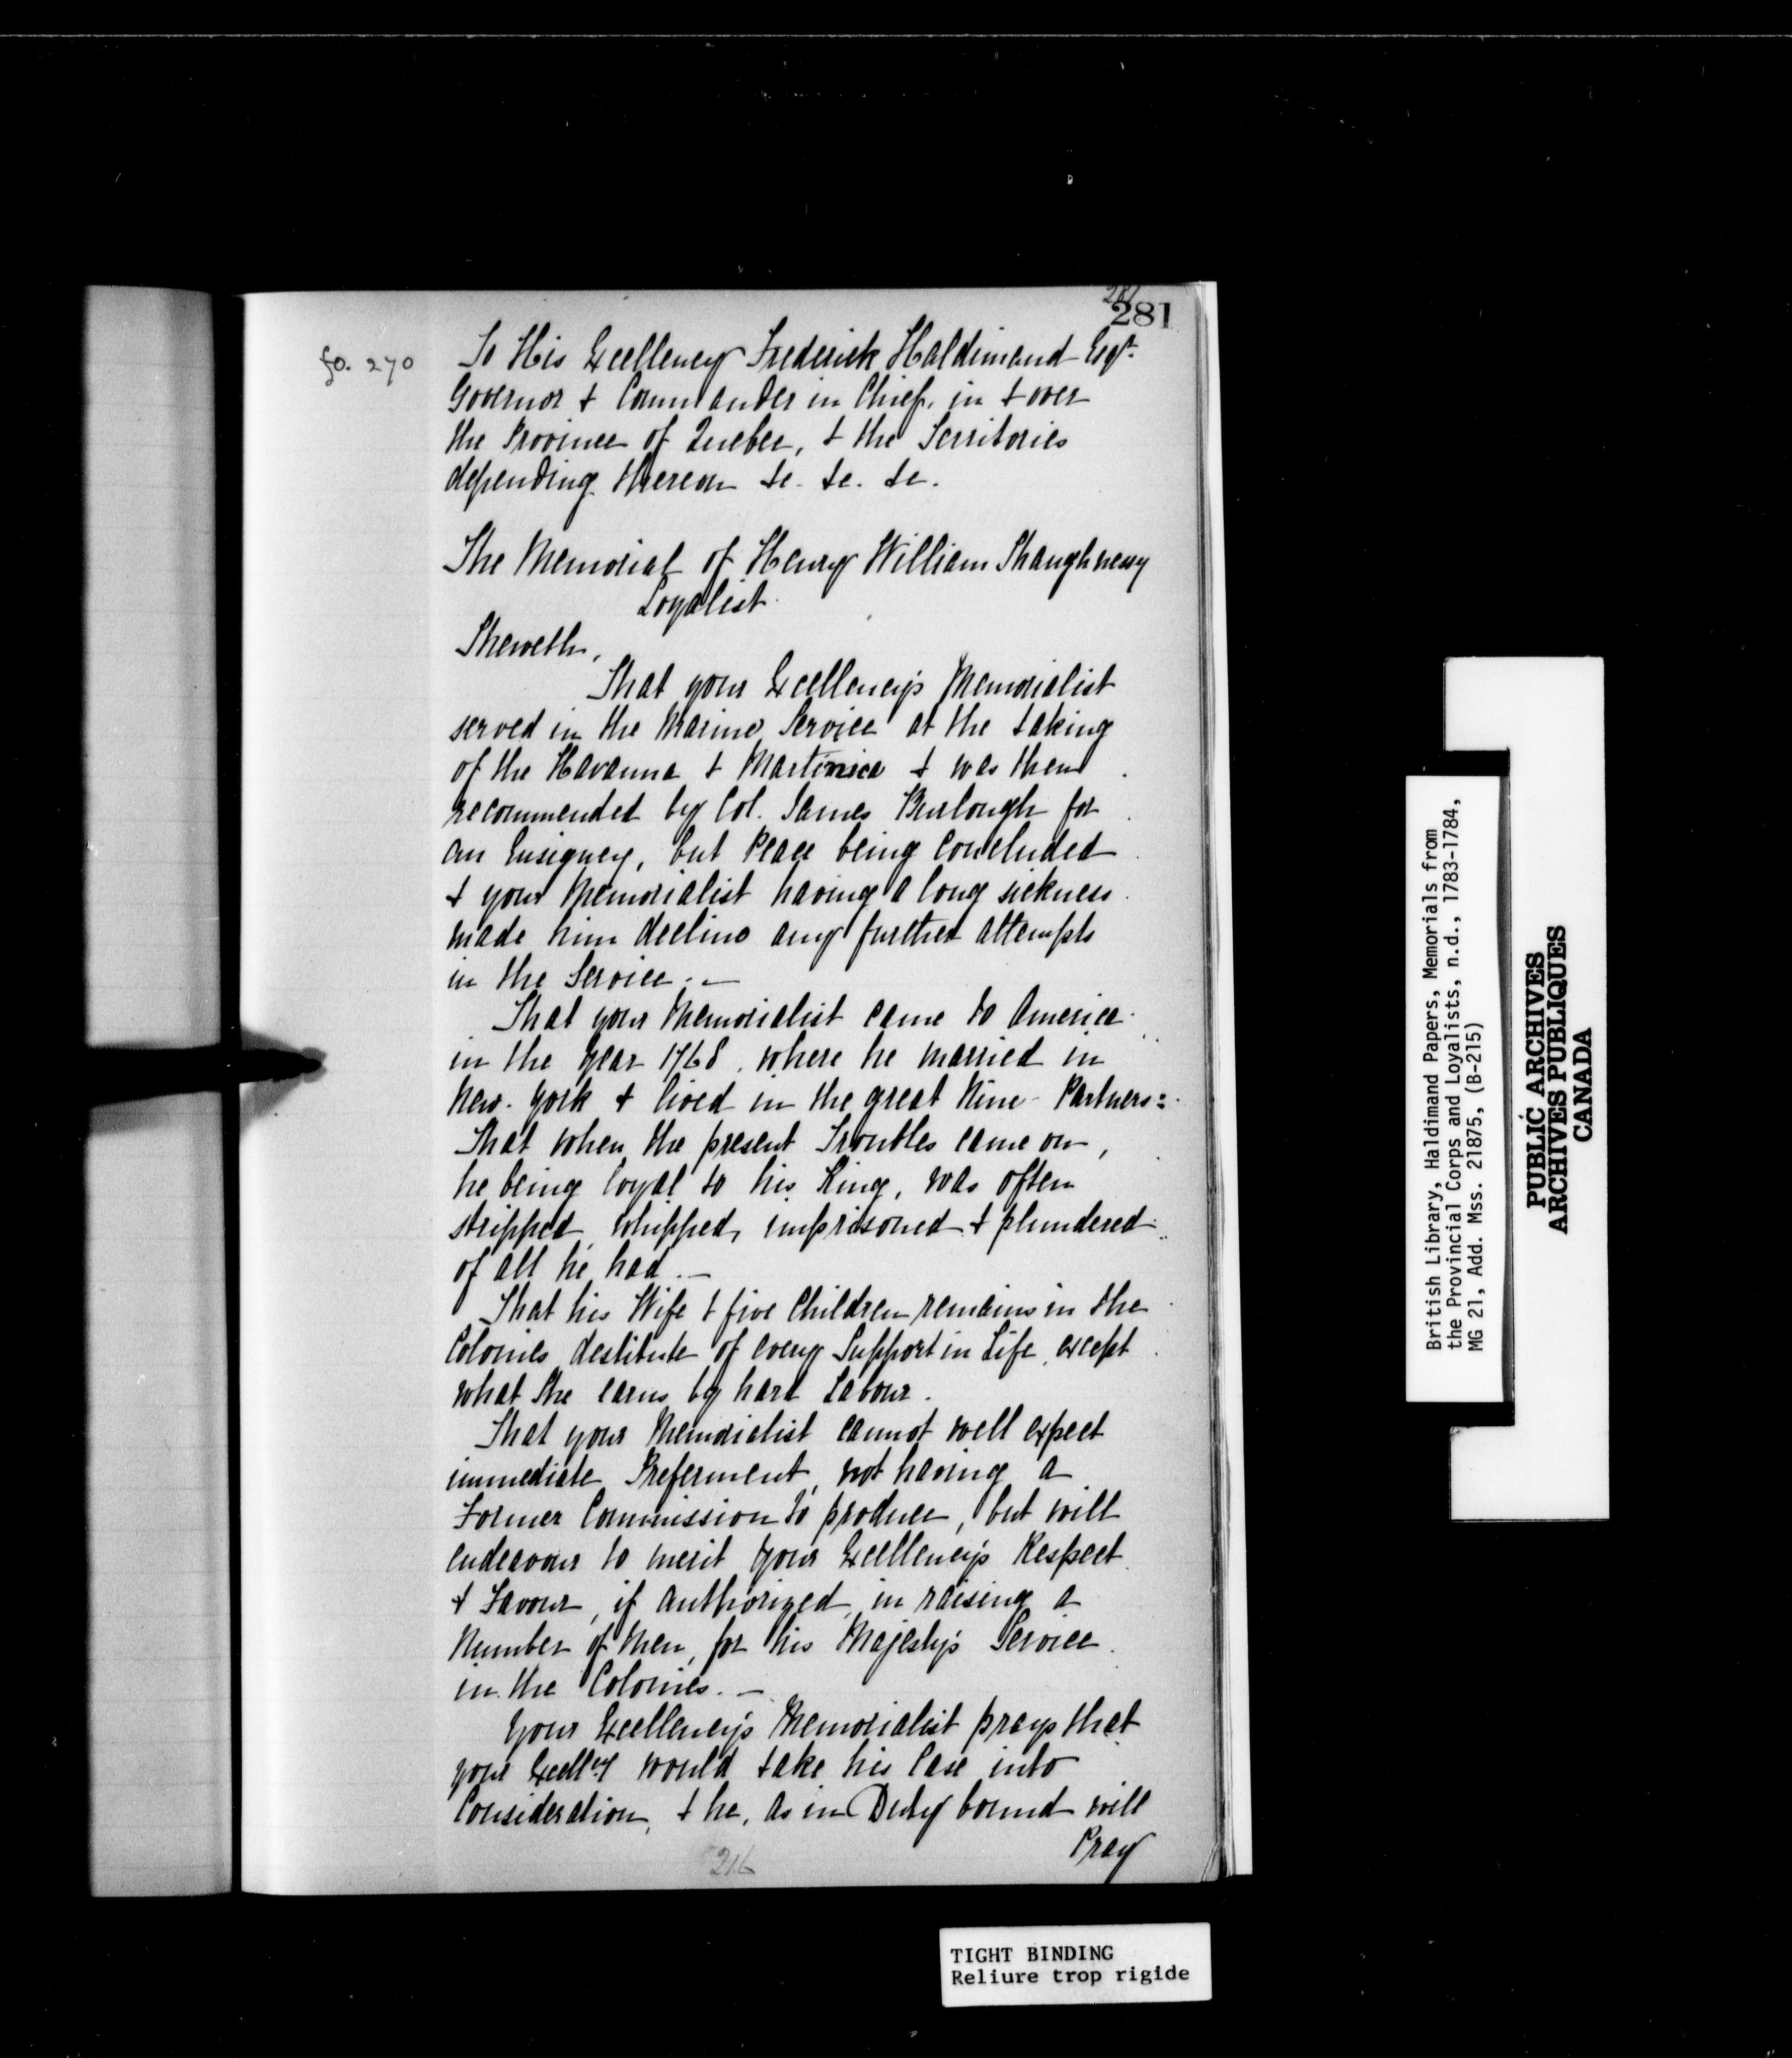 281
281
fo. 270
To His Excellency Frederick Haldimand Esqr.
Governor & Commander in Chief, in & over
the Province of Quebec, & the Territories
depending thereon &c. &c. &c.
The Memorial of Henry William Shaughnessy
Loyalist.
Sheweth,
That your Excellency's Memorialist
served in the Marine Service at the taking
of the Havanna & Martinica & was then
recommended by Col. James Burlough for
an Ensigncy, but Peace being concluded
& your Memorialist having a long sickness
made him decline any further attempts
in the Service. —
That your Memorialist came to America
in the year 1768, where he married in
New-York & lived in the great Nine-Partners:
That when the present Troubles came on,
he being loyal to his King, was often
stripped, whipped, imprisoned & plundered
of all he had. —
That his Wife & five Children remains in the
Colonies destitute of every Support in Life, except
what She earns by hard Labour.
That your Memorialist cannot well expect
immediate Preferment, not having a
Former Commission to produce, but will
endeavour to merit your Excellency's Respect
& Favour, if authorized, in raising a
Number of Men, for his Majesty's Service
in the Colonies. —
Your Excellency's Memorialist prays that
your Excellcy would take his Case into
Consideration, & he, as in Duty bound will
Pray
216
British Library, Haldimand Papers, Memorials from
the Provincial Corps and Loyalists, n.d., 1783-1784,
MG 21, Add. Mss. 21875, (B-215)
PUBLIC ARCHIVES
ARCHIVES PUBLIQUES
CANADA
TIGHT BINDING
Reliure trop rigide